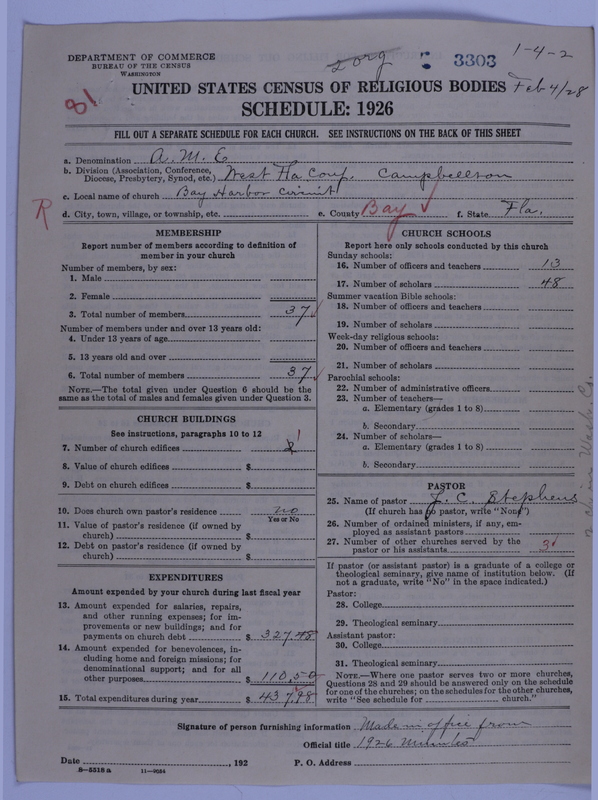 2 org 5 3303 1-4-2
DEPARTMENT OF COMMERCE
BUREAU OF THE CENSUS
WASHINGTON
81
UNITED STATES CENSUS OF RELIGIOUS BODIES Feb 4/28
SCHEDULE: 1926
FILL OUT A SEPARATE SCHEDULE FOR EACH CHURCH. SEE INSTRUCTIONS ON THE BACK OF THIS SHEET
a. Denomination A. M. E
b. Division (Association, Conference, Diocese, Presbytery, Synod, etc.) West Fla. Conf. Campbellton
c. Local name of church Bay Harbor Circuit
R
d. City, town, village, or township, etc. e. County Bay f. State Fla.
MEMBERSHIP
Report number of members according to definition of
member in your church
Number of members, by sex:
1. Male
2. Female
3. Total number of members 37
Number of members under and over 13 years old:
4. Under 13 years of age
5. 13 years old and over
6. Total number of members 37
NOTE.—The total given under Question 6 should be the
same as the total of males and females given under Question 3.
CHURCH BUILDINGS
See instructions, paragraphs 10 to 12
7. Number of church edifices 2 1
8. Value of church edifices $
9. Debt on church edifices $
10. Does church own pastor's residence no
Yes or No
11. Value of pastor's residence (if owned by
church) $
12. Debt on pastor's residence (if owned by
church) $
EXPENDITURES
Amount expended by your church during last fiscal year
13. Amount expended for salaries, repairs,
and other running expenses; for im-
provements or new buildings; and for
payments on church debt $ 327.48
14. Amount expended for benevolences, in-
cluding home and foreign missions; for
denominational support; and for all
other purposes $ 110.50
15. Total expenditures during year $ 437.98
CHURCH SCHOOLS
Report here only schools conducted by this church
Sunday schools:
16. Number of officers and teachers 13
17. Number of scholars 48
Summer vacation Bible schools:
18. Number of officers and teachers
19. Number of scholars
Week-day religious schools:
20. Number of officers and teachers
21. Number of scholars
Parochial schools:
22. Number of administrative officers
23. Number of teachers—
a. Elementary (grades 1 to 8)
b. Secondary
24. Number of scholars—
a. Elementary (grades 1 to 8)
b. Secondary
PASTOR
25. Name of pastor J. C. Stephens
(If church has no pastor, write "None")
26. Number of ordained ministers, if any, em-
ployed as assistant pastors
27. Number of other churches served by the
pastor or his assistants 3
If pastor (or assistant pastor) is a graduate of a college or
theological seminary, give name of institution below. (If
not a graduate, write "No" in the space indicated.)
Pastor:
28. College
29. Theological seminary
Assistant pastor:
30. College
31. Theological seminary
NOTE.—Where one pastor serves two or more churches,
Questions 28 and 29 should be answered only on the schedule
for one of the churches; on the schedules for the other churches,
write "See schedule for church."
Signature of person furnishing information Made in office from
Official title 1926 Minutes
Date , 192 P. O. Address
8—5518 a 11—9034